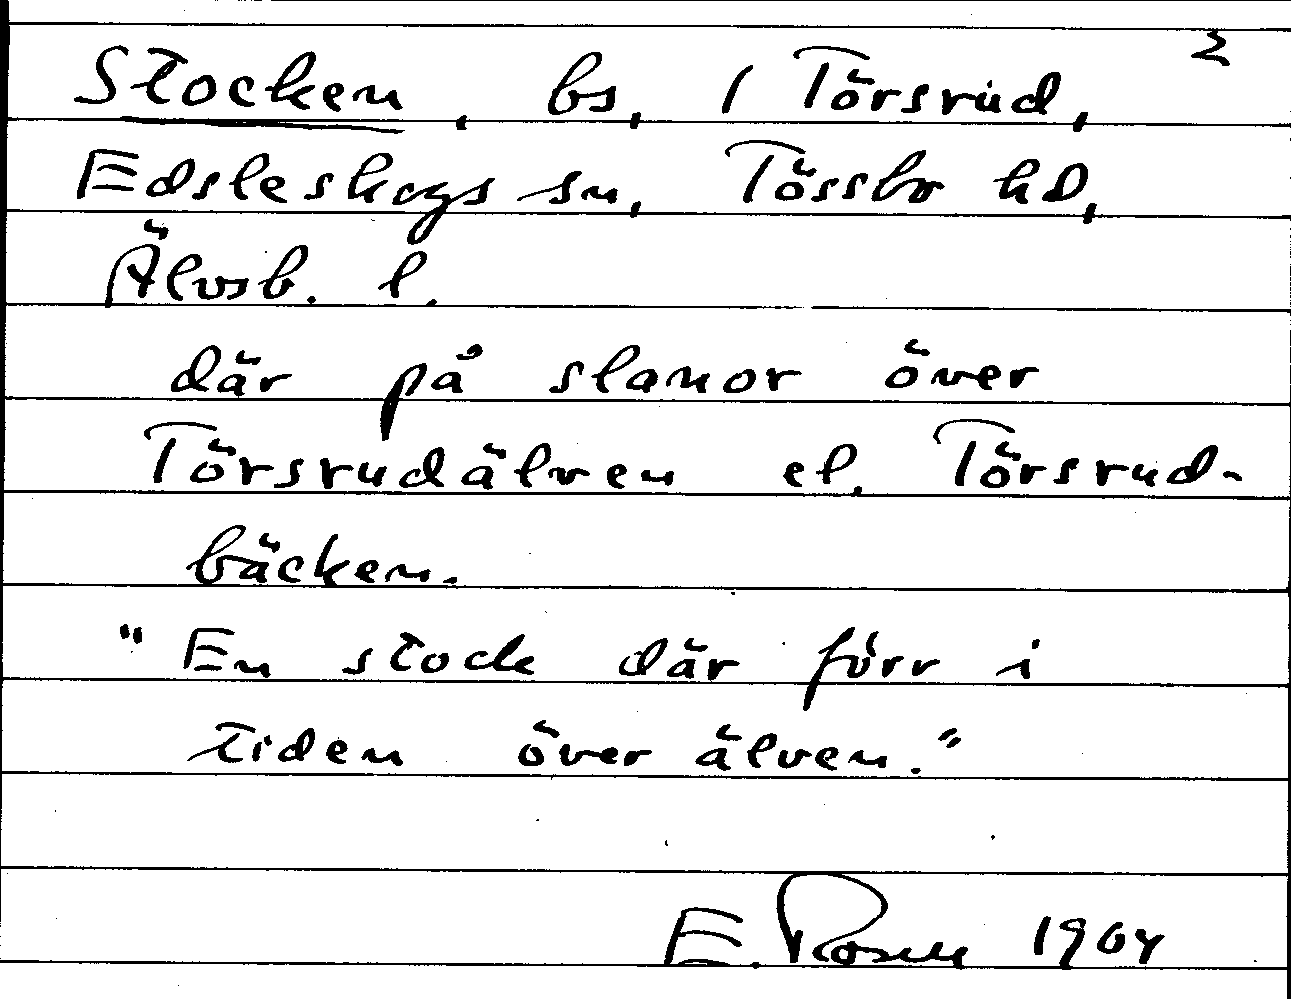 Stocken, bs, / Törsrud,
Edsleskogs sn, Tössbo hd,
Älvsb. l.
där på slanor över
Törsrudälven el. Törsrud-
bäcken.
"En stock där förr i
tiden över älven."
E. Rosell 1904